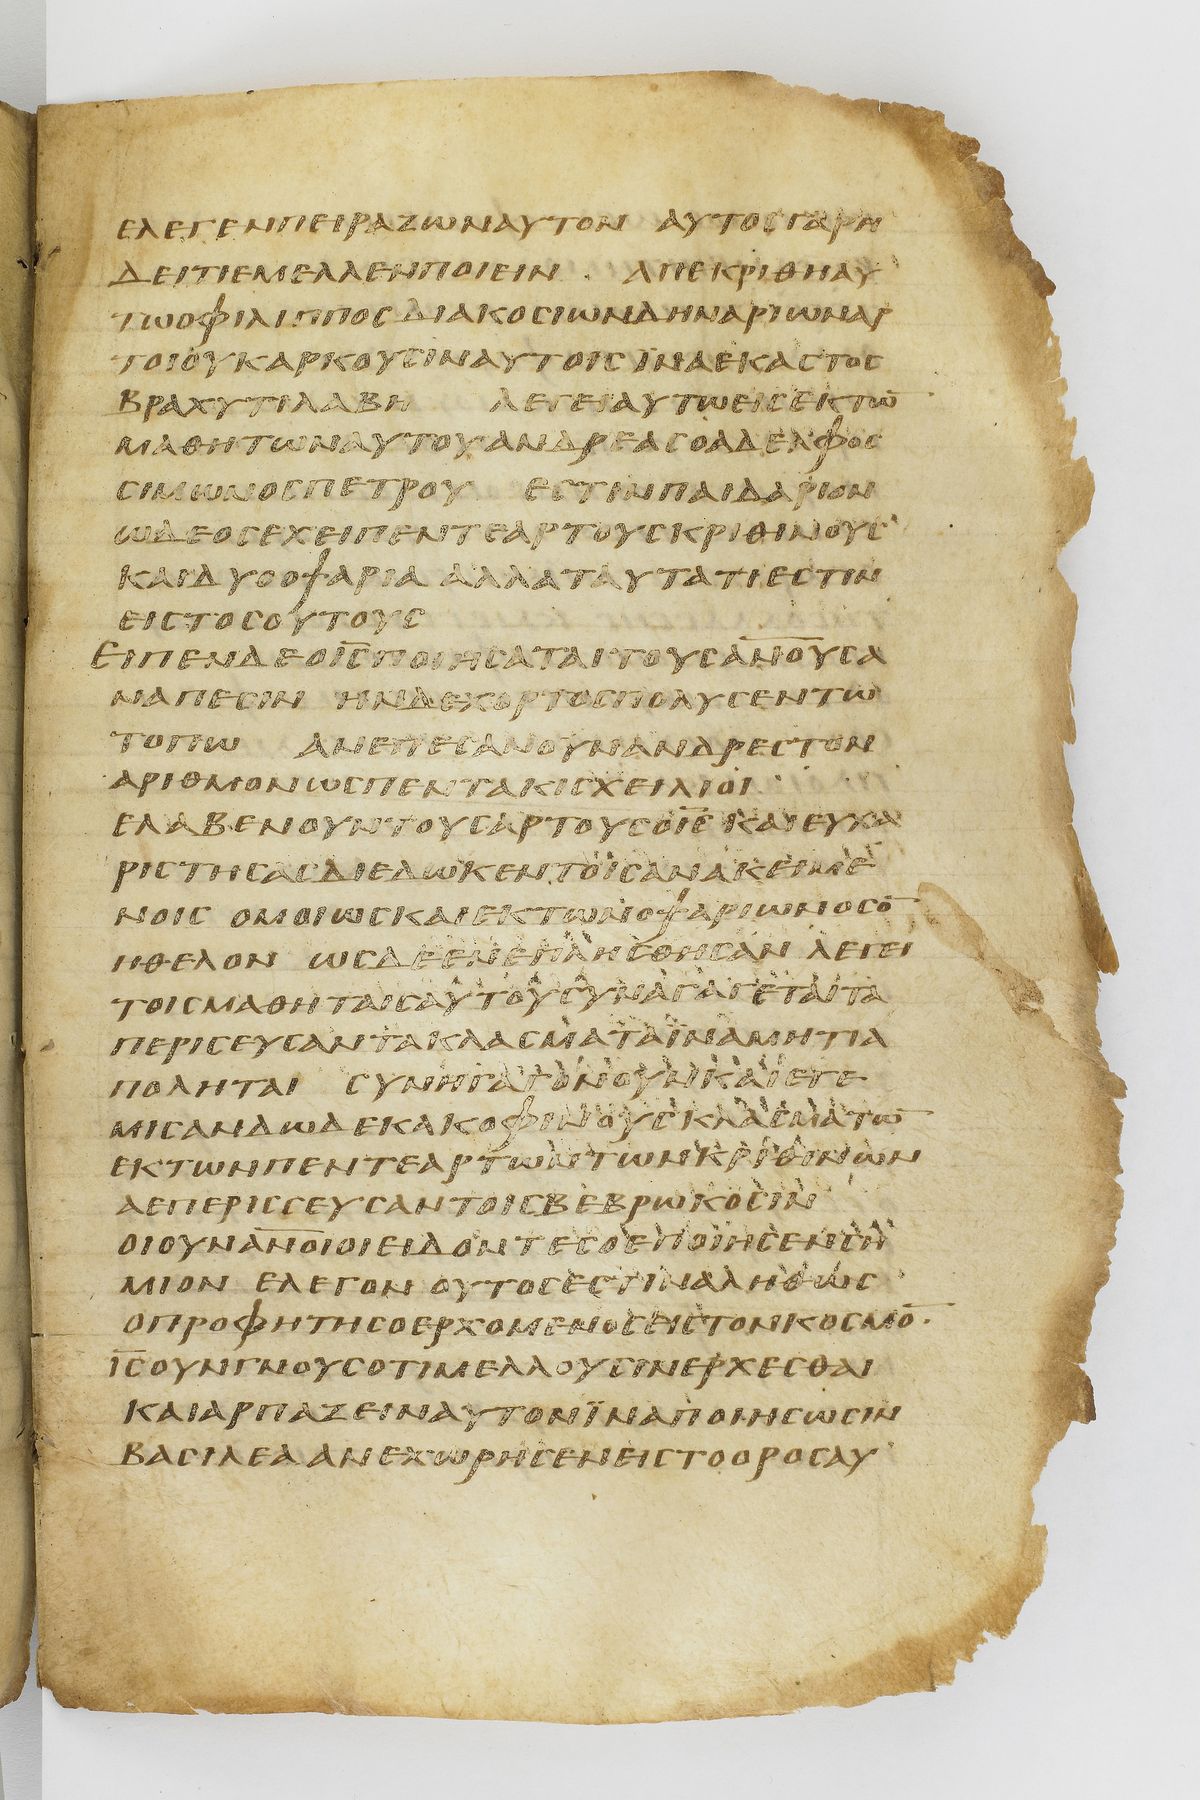 ελεγενπειραζωναυτον αυτοσγαρη
δειτιεμελλενποιειν · απεκριθηαυ
τωοφιλιπποσ διακοσιωνδηναριωναρ
τοιουκαρκουσιναυτοισ ϊναεκαστοσ
βραχυτιλαβη λεγειαυτωεισεκτω̅
μαθητωναυτουανδρεασοαδελφοσ
σιμωνοσπετρου εστινπαιδαριον
ωδεοσεχειπεντεαρτουσκριθινουσ
καιδυοοψαρια αλλαταυτατιεστιν
ειστοσουτουσ
Ειπενδεοι̅σ̅ποιησαταιτουσα̅ν̅ο̅υ̅σα
ναπεσιν ηνδεχορτοσπολυσεντω
τοπω ανεπεσανουνανδρεστον
αριθμονωσπεντακισχειλιοι
ελαβενουντουσαρτουσοι̅σ̅ καιευχα
ριστησασδιεδωκεντοισανακειμε
νοισ ομοιωσκαιεκτωνοψαριωνοσο̅
ηθελον ωσδεενεπλησθησαν λεγει
τοισμαθηταισαυτουσυναγαγεταιτα
περισευσαντακλασματαϊναμητια
poληται συνηγαγονουνκαιεγε
μισανδωδεκακοφινουσκλασματω̅
εκτωνπεντεαρτωντωνκριθινων
αεπερισσευσαντοισβεβρωκοσιν
οιουνα̅ν̅ο̅ι̅οιειδοντεσοεποιησενση
μιον ελεγον ουτοσεστιναληθωσ
οπροφητησοερχομενοσειστονκοσμο̅·
ι̅σ̅ουνγνουσοτιμελλουσινερχεσθαι
καιαρπαζειναυτονϊναποιησωσιν
βασιλεαανεχωρησενειστοοροσαυ